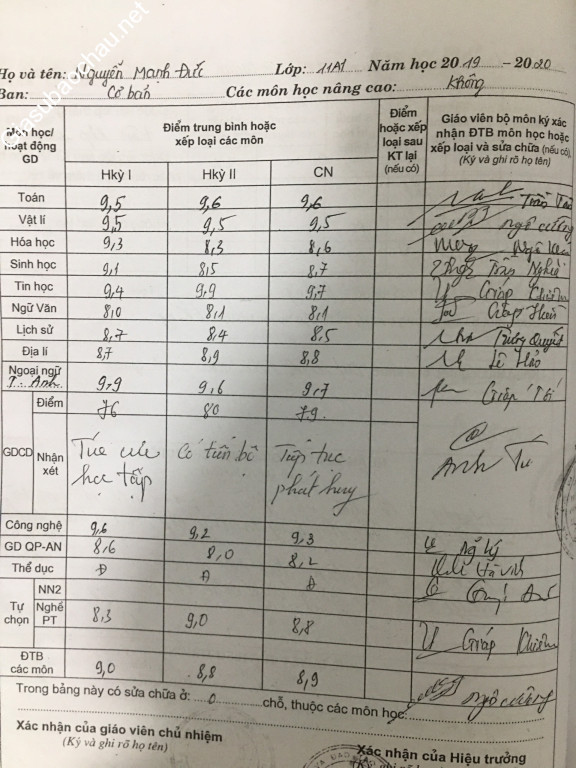 giasubaochau.net
Họ và tên: Nguyễn Mạnh Đức Lớp: 11A1 Năm học 2019 - 2020
Ban: Cơ bản Các môn học nâng cao: Không
Môn học/ hoạt động GD
Điểm trung bình hoặc xếp loại các môn
Điểm hoặc xếp loại sau KT lại (nếu có)
Giáo viên bộ môn ký xác nhận ĐTB môn học hoặc xếp loại và sửa chữa (nếu có) (Ký và ghi rõ họ tên)
Hkỳ I Hkỳ II CN
Toán 9,5 9,6 9,6 Trần
Vật lí 9,5 9,5 9,5 Ngô Cường
Hóa học 9,3 8,3 8,6 Ngô
Sinh học 9,1 8,5 8,7 Trần Nghĩa
Tin học 9,4 9,9 9,7 Giáp Chiêm
Ngữ Văn 8,0 8,1 8,1 Giáp
Lịch sử 8,7 8,4 8,5 Quyết
Địa lí 8,7 8,9 8,8 Lê Hảo
Ngoại ngữ
T. Anh 9,9 9,6 9,7 Giáp
GDCD
Điểm 76 80 79
Nhận xét Tích cực học tập Có tiến bộ Tiếp tục phát huy Anh Tú
Công nghệ 9,6 9,2 9,3 Ng Lý
GD QP-AN 8,6 8,0 8,2
Thể dục Đ Đ Đ
Tự chọn
NN2
Nghề PT 8,3 9,0 8,8 Giáp Chiêm
ĐTB các môn 9,0 8,8 8,9 Ngô Cường
Trong bảng này có sửa chữa ở: 0 chỗ, thuộc các môn học:
Xác nhận của giáo viên chủ nhiệm
(Ký và ghi rõ họ tên)
Xác nhận của Hiệu trưởng